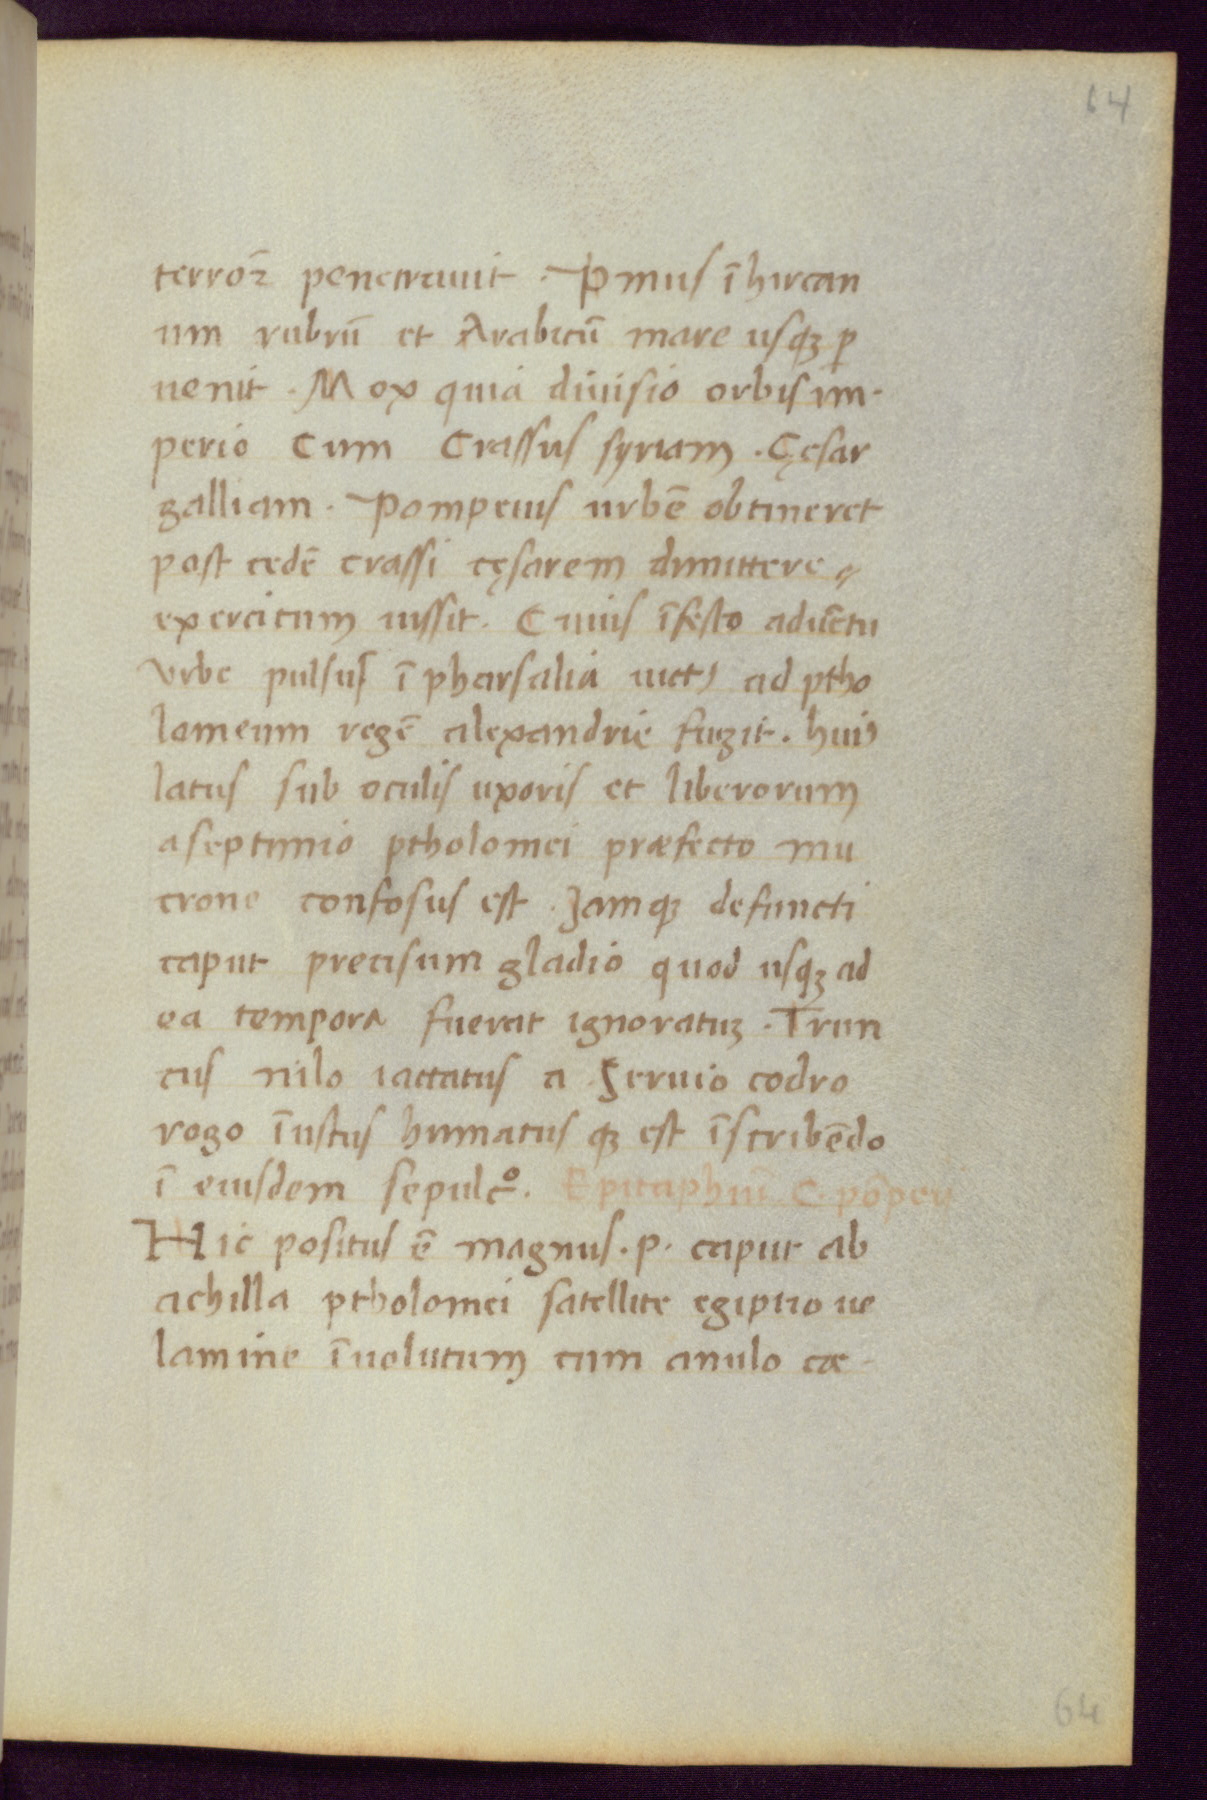 64
terroꝝ penetrauit · Pmus ī hircan
um rubrū et Arabicū mare usqꝫ ꝑ
uenit · Mox quia diuisio orbis im-
perio Cum Crassus syriam · Cęsar
galliam · Pompeius urbē obtineret
post cedē crassi cęsarem dimittere
exercitum iussit · Cuius īfesto aduētu
vrbe pulsus ī pharsalia uictꝰ ad ptho
lomeum regē alexandrie fugit · huiꝰ
latus sub oculis uxoris et liberorum
a septimio ptholomei præfecto mu
crone confosus est · Jamqꝫ defuncti
caput precisum gladio quod usqꝫ ad
ea tempora fuerat ignoratuꝫ · Trun
cus nilo iactatus a Seruio codro
rogo īustus humatus qꝫ est īscribēdo
ī eiusdem sepulcͦ. Epitaphiū C. pōpeii
Hic positus ē magnus · p · caput ab
achilla ptholomei satellite egiptio ue
lamine īuolutum cum anulo cæ-
64